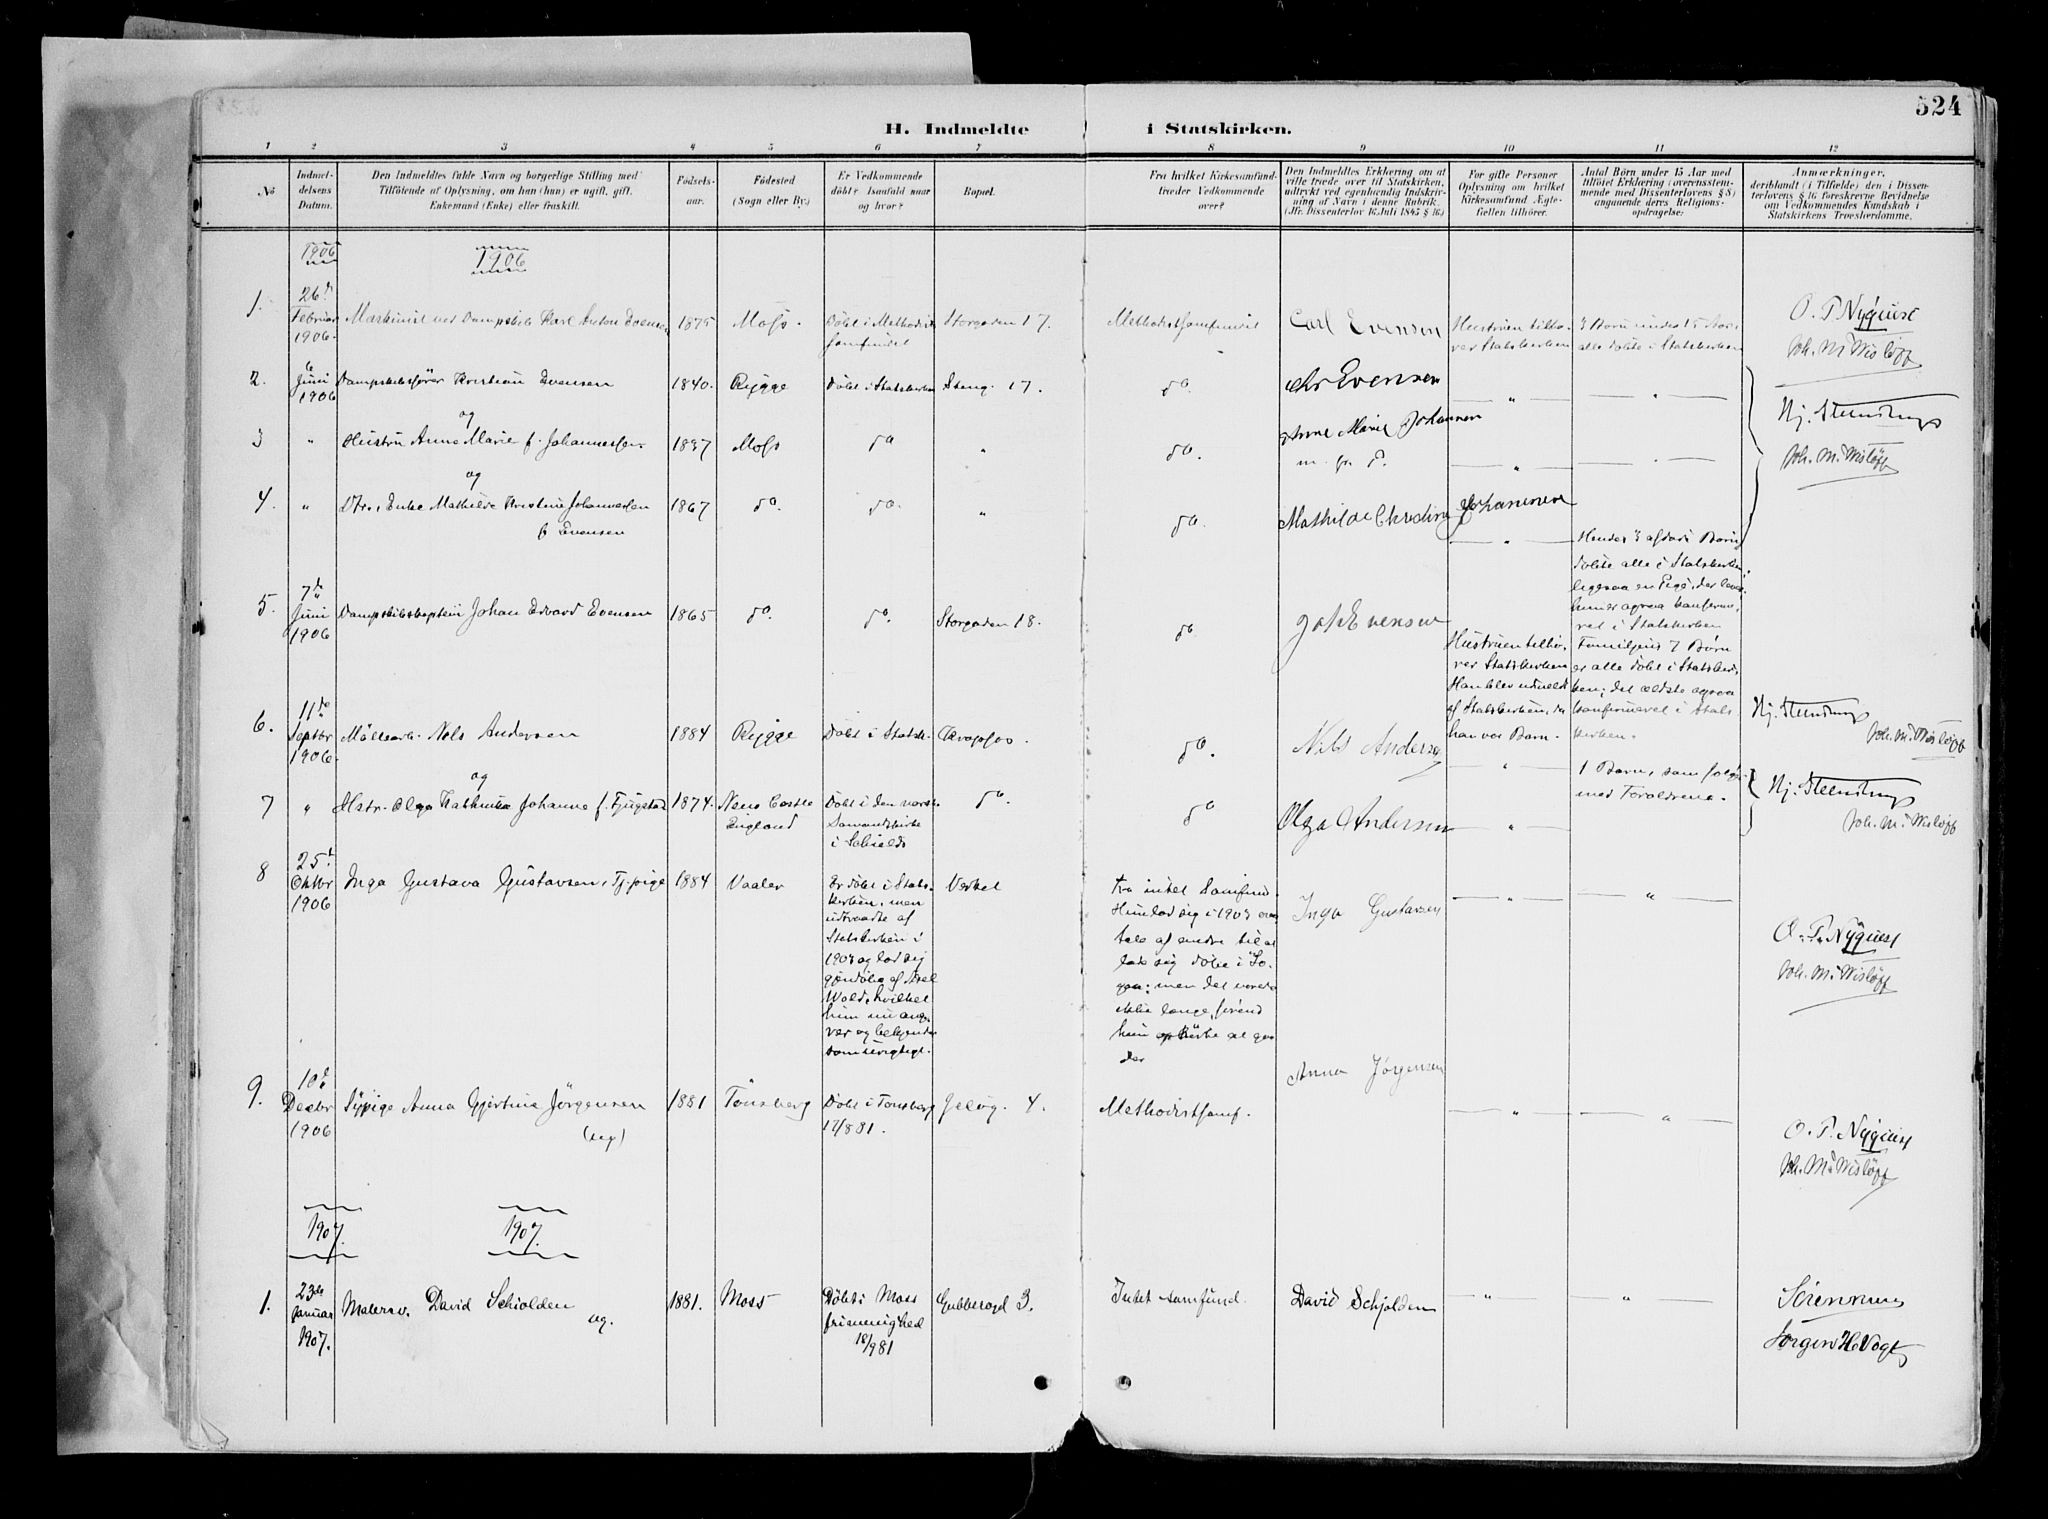 524
H. Indmeldte i Statskirken.
1 2 3 4 5 6 7 8 9 10 11 12
No
Indmel-
delsens
Datum.
Den Indmeldtes fulde Navn og borgerlige Stilling med
Tilføiende af Oplysning, om han (hun) er ugift, gift,
Enkemand (Enke) eller fraskilt.
Fødsels-
aar.
Fødested
(Sogn eller By.)
Er Vedkommende
døbt? Isaafald naar
og hvor?
Bopæl.
Fra hvilket Kirkesamfund
træder Vedkommende
over?
Den Indmeldtes Erklæring om at
ville træde over til Statskirken,
udtrykt ved egenhændig Indskriv-
ning af Navn i denne Rubrik.
(Jfr. Dissenterlov 16 Juli 1845 § 16.)
For gifte Personer
Oplysning om hvilket
Kirkesamfund Ægte-
fællen tilhører.
Antal Børn under 15 Aar med
tilføiet Erklæring (overensstem-
mende med Dissenterlovens § 8)
angaaende deres Religions-
opdragelse:
Anmærkninger,
deriblandt (i Tilfælde) den i Dissen-
terlovens § 16 foreskrevne Bevidnelse
om Vedkommendes Kundskab i
Statskirkens Troeslærdomme.
1906 1906
1.
26de
Februar
1906.
Maskinist ved Dampskib Karl Anton Evensen
1875
Moss.
Døbt i Methodist
samfundet
Storgaden 17.
Methodistsamfundet
Carl Evensen
Hustruen tilhø-
rer Statskirken
3 Børn under 15 Aar,
alle døbte i Statskirken
O. T. Nyquist
Joh. M. Wisløff
2.
6
Juni
1906
Dampskibsfører Kristian Evensen
1840.
Rygge
Døbt i Statskirken
Storg. 17.
do
Chr Evensen
"
"
Nj. Steenstrup
Joh. M. Wisløff
og
3
"
Hustru Anne Marie f. Johannessen
1837
Moss
do
"
do.
Anne Marie Johannsen
m. fr. P.
"
og
4.
"
Dtr., Enke Mathilde Kristine Johannessen
f Evensen
1867
do.
do.
"
do.
Mathilde Christine Johannesen
"
Hendes 3 Børn
døbte alle i Statskirken,
ligesaa en Pige, der
ret i Statskirken
5.
7de
Juni
1906
Dampskibskaptein Johan Edvard Evensen
1865
do.
do.
Storgaden 18.
do
Joh Evensen
Hustruen tilhø-
rer Statskirken
Han blev udmeldt
af Statskirken, da
han var Barn.
Familjens 7 Børn
er alle døbt i Statskir-
ken; det ældste ogsaa
konfirmeret i Stats
kirken.
Nj. Steenstrup
Joh. M. Wisløff
6.
11te
Septbr
1906.
Møllearb. Nils Andersen
1884
Rygge
Døbt i Statsk.
Krapfos
do.
Nils Andersen
"
1 Barn, som følger
med Forældrene.
Nj. Steenstrup
Joh. M. Wisløff
og
7
"
Hstr. Olga Kathinka Johanne f. Fjugstad
1874.
New Castle
England
Døbt i den norske
Sømandskirke
i Schields
do.
do
Olga Andersen
"
8
25de
Oktbr
1906
Inga Gustava Gustavsen, Tj.pige
1884
Vaaler
Er døbt i Stats-
kirken, men
udtraadte af
Statskirken i
1903 og lod sig
gjendøbe af Axel
Wold, hvilket
hun nu ang-
rer og bekjender
som urigtigt.
Verket
Fra intet Samfund.
Hun lod sig i 1903 over-
tale af andre til at
lade sig døbe i
men det varede
ikke længe, førend
hun
der
Inga Gustavsen
"
"
O. T. Nyquist
Joh. M. Wisløff
9.
10de
Decbr
1906
Sypige Anna Gjertine Jörgensen
(ug)
1881
Tönsberg
Døbt i Tönsberg
17/8 81.
Jelög. 4.
Methodistsamf.
Anna Jörgensen
"
"
O. T. Nyquist
Joh. M. Wisløff
1907. 1907.
1.
23de
Januar
1907.
Malersv. David Schiolden
ug.
1881.
Moss
Døbt i Moss
frimenighed
18/9 81
Gubberogd 3.
Intet samfund.
David Schjolden
"
"
Sörensen
Jörgen H. Vogt